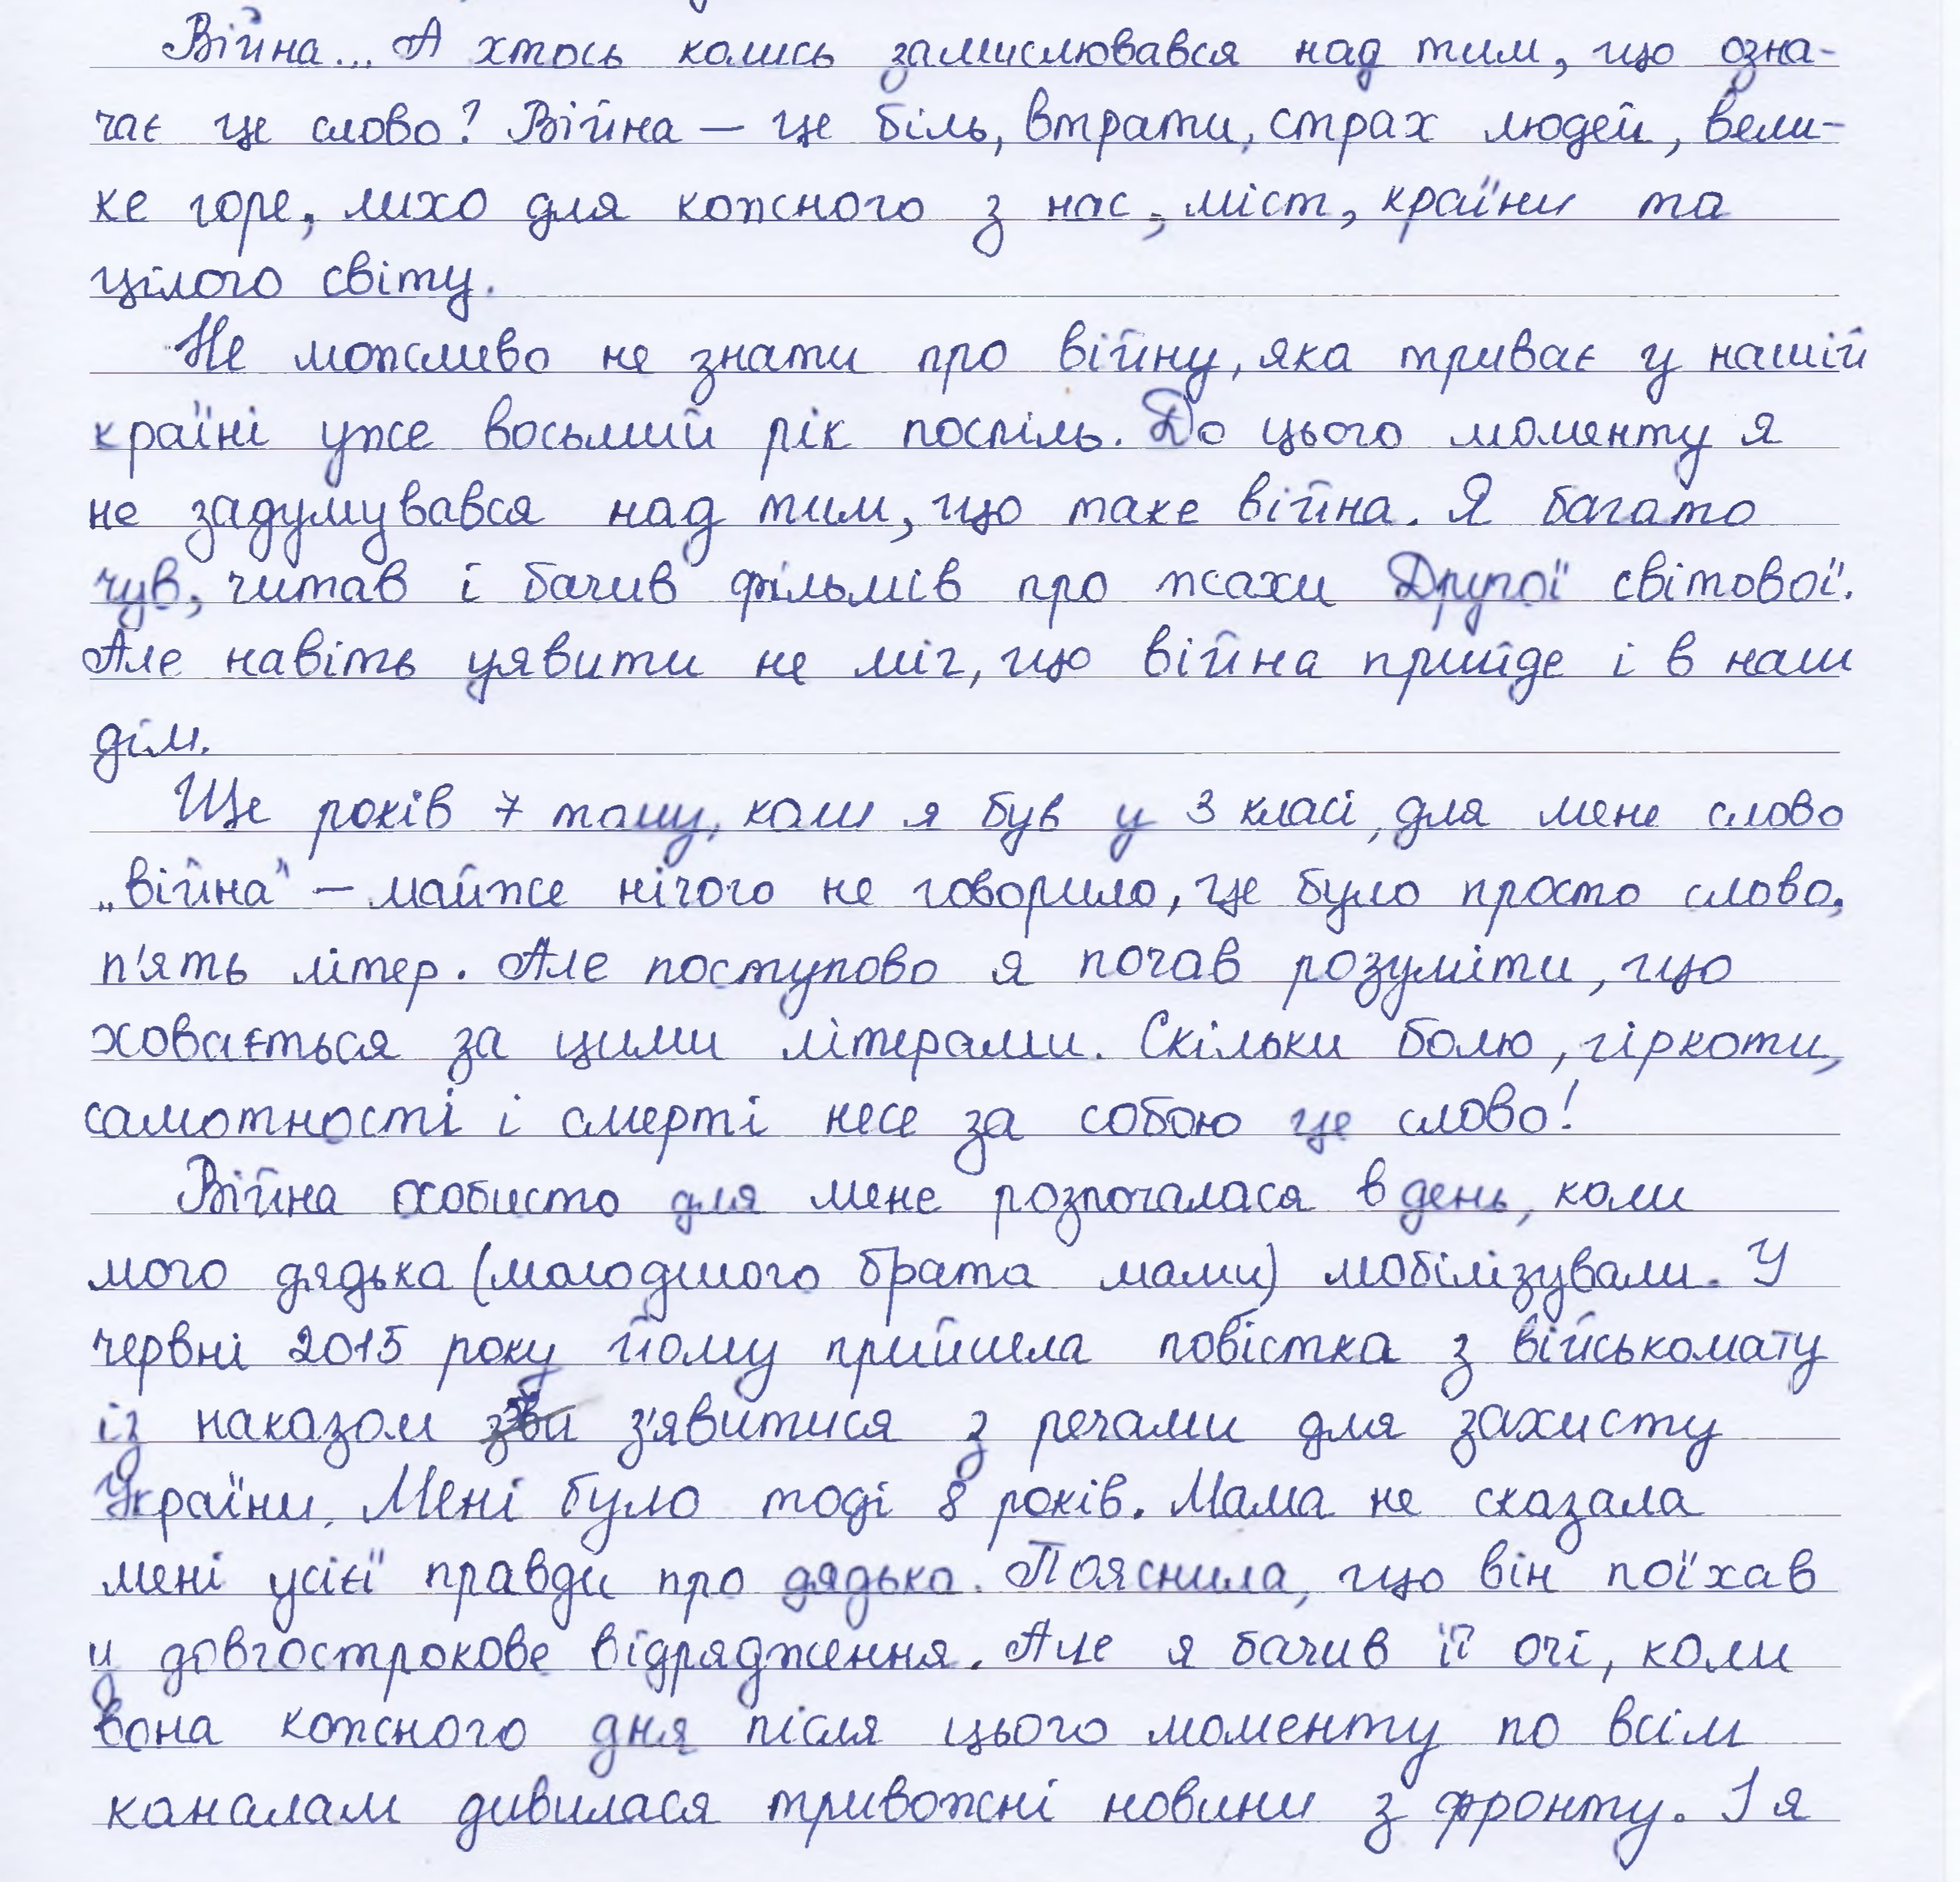 Війна... А хтось колись замислювався над тим, що озна-
чає це слово? Війна — це біль, втрати, страх людей, вели-
ке горе, лихо для кожного з нас, міст, країни та
цілого світу.
Не можливо не знати про війну, яка триває у нашій
країні уже восьмий рік поспіль. До цього моменту я
не задумувався над тим, що таке війна. Я багато
чув, читав і бачив фільмів про жахи Другої світової.
Але навіть уявити не міг, що війна прийде і в наш
дім.
Ще років 7 тому, коли я був у 3 класі, для мене слово
„війна" — майже нічого не говорило, це було просто слово,
п'ять літер. Але поступово я почав розуміти, що
ховається за цими літерами. Скільки болю, гіркоти,
самотності і смерті несе за собою це слово!
Війна особисто для мене розпочалася в день, коли
мого дядька (молодшого брата мами) мобілізували. У
червні 2015 року йому прийшла повістка з військомату
із наказом з'явитися з речами для захисту
України. Мені було тоді 8 років. Мама не сказала
мені усієї правди про дядька. Пояснила, що він поїхав
у довгострокове відрядження. Але я бачив її очі, коли
вона кожного дня після цього моменту по всім
каналам дивилася тривожні новини з фронту. І я